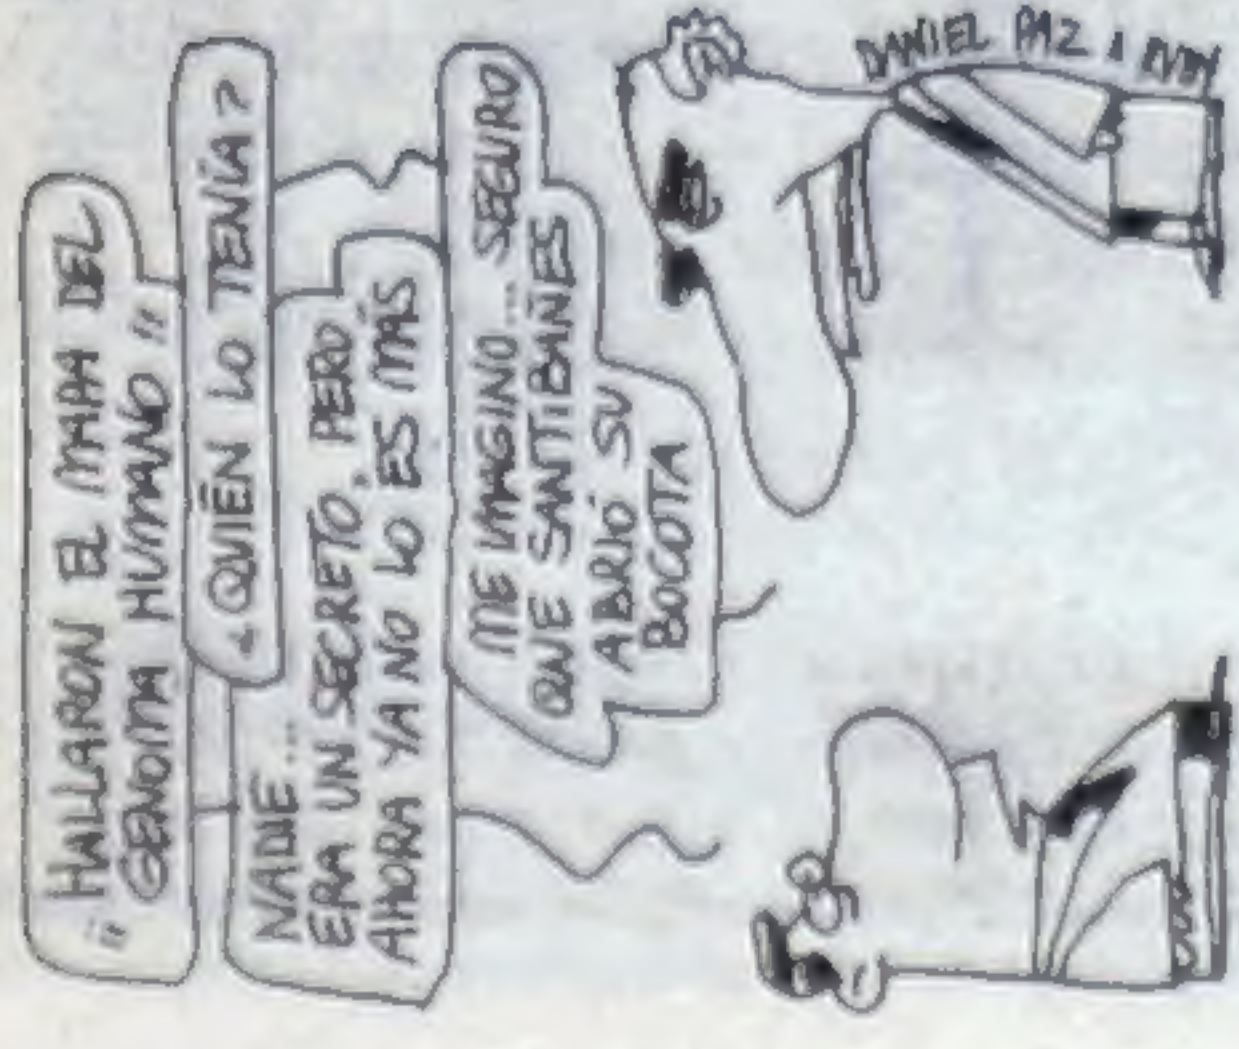 "HALLARON EL MAPA DEL
GENOMA HUMANO"
¿QUIÉN LO TENÍA?
NADIE...
ERA UN SECRETO, PERO
AHORA YA NO LO ES MÁS
ME IMAGINO... SEGURO
QUE SANTIBAÑES
ABRIÓ SU
BOCOTA
DANIEL PAZ & RUDY